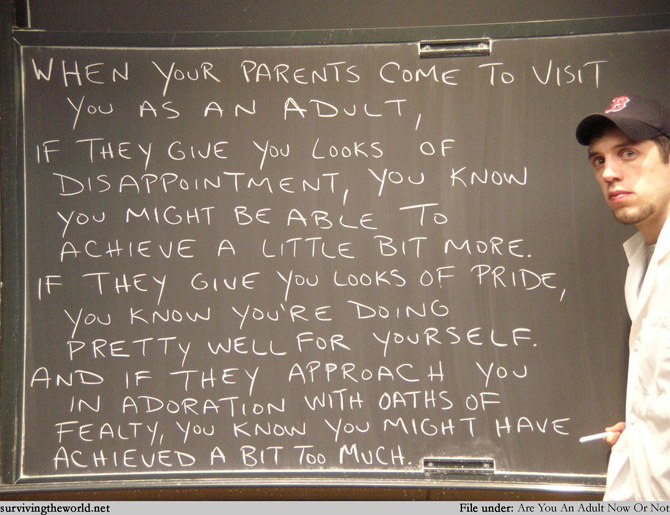 WHEN YOUR PARENTS COME TO VISIT
YOU AS AN ADULT,
IF THEY GIVE YOU LOOKS OF
DISAPPOINTMENT, YOU KNOW
YOU MIGHT BE ABLE TO
ACHIEVE A LITTLE BIT MORE.
IF THEY GIVE YOU LOOKS OF PRIDE,
YOU KNOW YOU'RE DOING
PRETTY WELL FOR YOURSELF.
AND IF THEY APPROACH YOU
IN ADORATION WITH OATHS OF
FEALTY, YOU KNOW YOU MIGHT HAVE
ACHIEVED A BIT TOO MUCH.
B
survivingtheworld.net File under: Are You An Adult Now Or Not